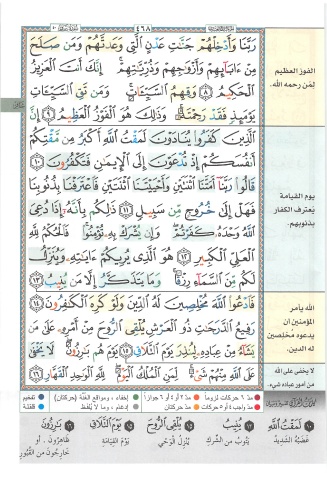 ٤٦٨
رَبَّنَا وَأَدْخِلْهُمْ جَنَّاتِ عَدْنٍ الَّتِي وَعَدتَّهُمْ وَمَن صَلَحَ
مِنْ ءَابَآئِهِمْ وَأَزْوَاجِهِمْ وَذُرِّيَّاتِهِمْ إِنَّكَ أَنتَ الْعَزِيزُ
الْحَكِيمُ ٨ وَقِهِمُ السَّيِّئَاتِ وَمَن تَقِ السَّيِّئَاتِ
يَوْمَئِذٍ فَقَدْ رَحِمْتَهُ وَذَٰلِكَ هُوَ الْفَوْزُ الْعَظِيمُ ٩ إِنَّ
الَّذِينَ كَفَرُوا يُنَادَوْنَ لَمَقْتُ اللَّهِ أَكْبَرُ مِن مَّقْتِكُمْ
أَنفُسَكُمْ إِذْ تُدْعَوْنَ إِلَى الْإِيمَانِ فَتَكْفُرُونَ ١٠
قَالُوا رَبَّنَا أَمَتَّنَا اثْنَتَيْنِ وَأَحْيَيْتَنَا اثْنَتَيْنِ فَاعْتَرَفْنَا بِذُنُوبِنَا
فَهَلْ إِلَىٰ خُرُوجٍ مِّن سَبِيلٍ ١١ ذَٰلِكُم بِأَنَّهُ إِذَا دُعِيَ
اللَّهُ وَحْدَهُ كَفَرْتُمْ وَإِن يُشْرَكْ بِهِ تُؤْمِنُوا فَالْحُكْمُ لِلَّهِ
الْعَلِيِّ الْكَبِيرِ ١٢ هُوَ الَّذِي يُرِيكُمْ ءَايَاتِهِ وَيُنَزِّلُ
لَكُم مِّنَ السَّمَآءِ رِزْقًا وَمَا يَتَذَكَّرُ إِلَّا مَن يُنِيبُ ١٣
فَادْعُوا اللَّهَ مُخْلِصِينَ لَهُ الدِّينَ وَلَوْ كَرِهَ الْكَافِرُونَ ١٤
رَفِيعُ الدَّرَجَاتِ ذُو الْعَرْشِ يُلْقِي الرُّوحَ مِنْ أَمْرِهِ عَلَىٰ مَن
يَشَآءُ مِنْ عِبَادِهِ لِيُنذِرَ يَوْمَ التَّلَاقِ ١٥ يَوْمَ هُم بَارِزُونَ لَا يَخْفَىٰ
عَلَى اللَّهِ مِنْهُمْ شَيْءٌ لِّمَنِ الْمُلْكُ الْيَوْمَ لِلَّهِ الْوَاحِدِ الْقَهَّارِ ١٦
الفوز العظيم
لمن رحمه الله.
يوم القيامة
يعترف الكفار
بذنوبهم.
الله يأمر
المؤمنين أن
يدعوه مخلصين
له الدين.
لا يخفى على الله
من أمور عباده شيء.
مد ٦ حركات لزوماً مد ٢ أو ٤ أو ٦ جوازاً إخفاء، ومواقع الغنّة (حركتان) تفخيم
مد واجب ٤ أو ٥ حركات مد حركتان إدغام، وما لا يُلفظ قلقلة
١٠ لَمَقْتُ اللَّهِ
غَضَبُهُ الشَّدِيدُ
١٣ يُنِيبُ
يَتُوبُ مِنَ الشِّرْكِ
١٥ يُلْقِي الرُّوحَ
يُنَزِّلُ الوَحْيَ
١٥ يَوْمَ التَّلَاقِ
يَوْمَ القِيَامَةِ
١٦ بَارِزُونَ
ظَاهِرُونَ، أو
خَارِجُونَ مِنَ القُبُورِ